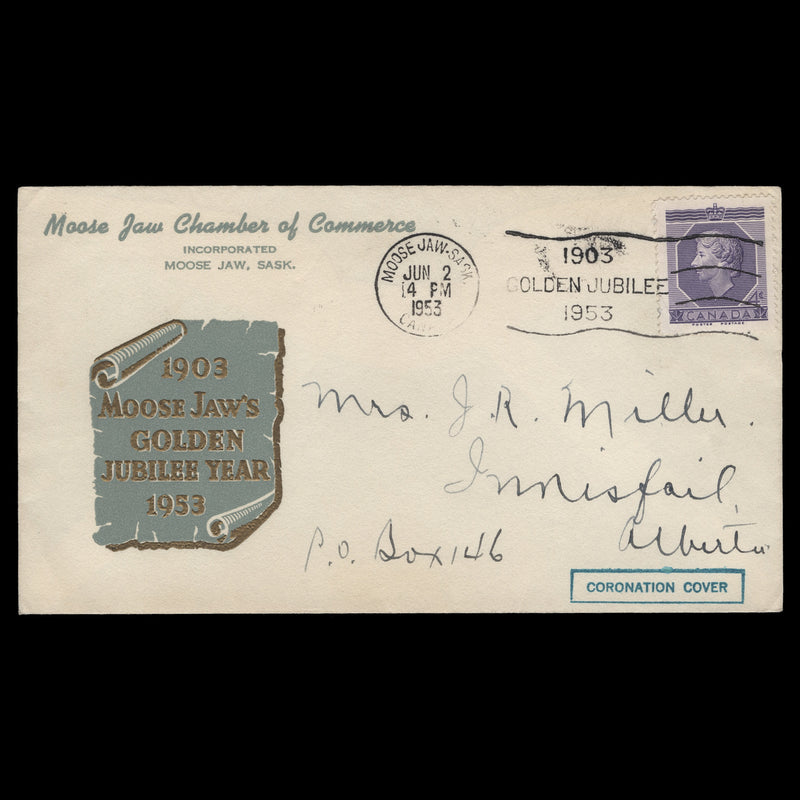 Moose Jaw Chamber of Commerce
INCORPORATED
MOOSE JAW, SASK.
MOOSE JAW-SASK.
JUN 2
14 PM
1953
CAN
1903
GOLDEN JUBILEE
1953
4¢
CANADA
POSTES POSTAGE
1903
MOOSE JAW'S
GOLDEN
JUBILEE YEAR
1953
Mrs. J. R. Miller.
Innisfail,
P.O. Box 146 Alberta
CORONATION COVER